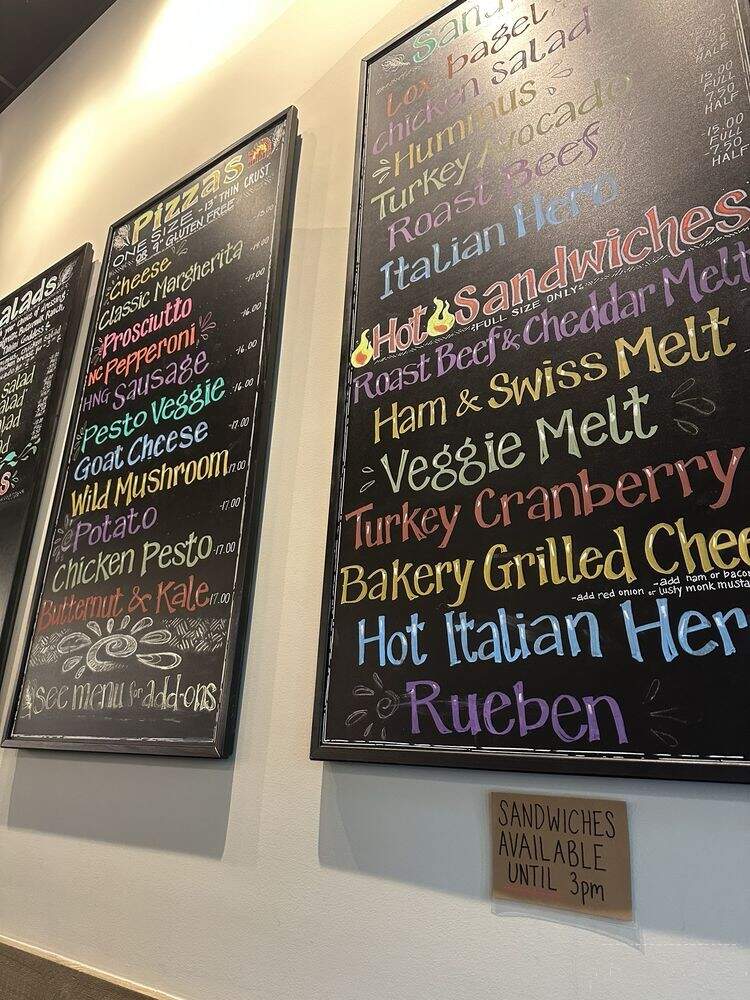 Salads
Salad
Pizzas
ONE SIZE - 13" THIN CRUST
OR 9" GLUTEN FREE
Cheese -15.00
Classic Margherita -16.00
Prosciutto -17.00
NC Pepperoni -16.00
HNG Sausage -16.00
Pesto Veggie -16.00
Goat Cheese -17.00
Wild Mushroom -17.00
Potato -17.00
Chicken Pesto -17.00
Butternut & Kale -17.00
see menu for add-ons
Lox bagel
chicken salad
Hummus
Turkey Avocado
Roast Beef
Italian Hero
15.00
FULL
7.50
HALF
-15.00
FULL
7.50
HALF
Hot Sandwiches
*FULL SIZE ONLY*
Roast Beef & Cheddar Melt
Ham & Swiss Melt
Veggie Melt
Turkey Cranberry
Bakery Grilled Chee
-add ham or baco
-add red onion or lusty monk musta
Hot Italian Her
Rueben
SANDWICHES
AVAILABLE
UNTIL 3pm